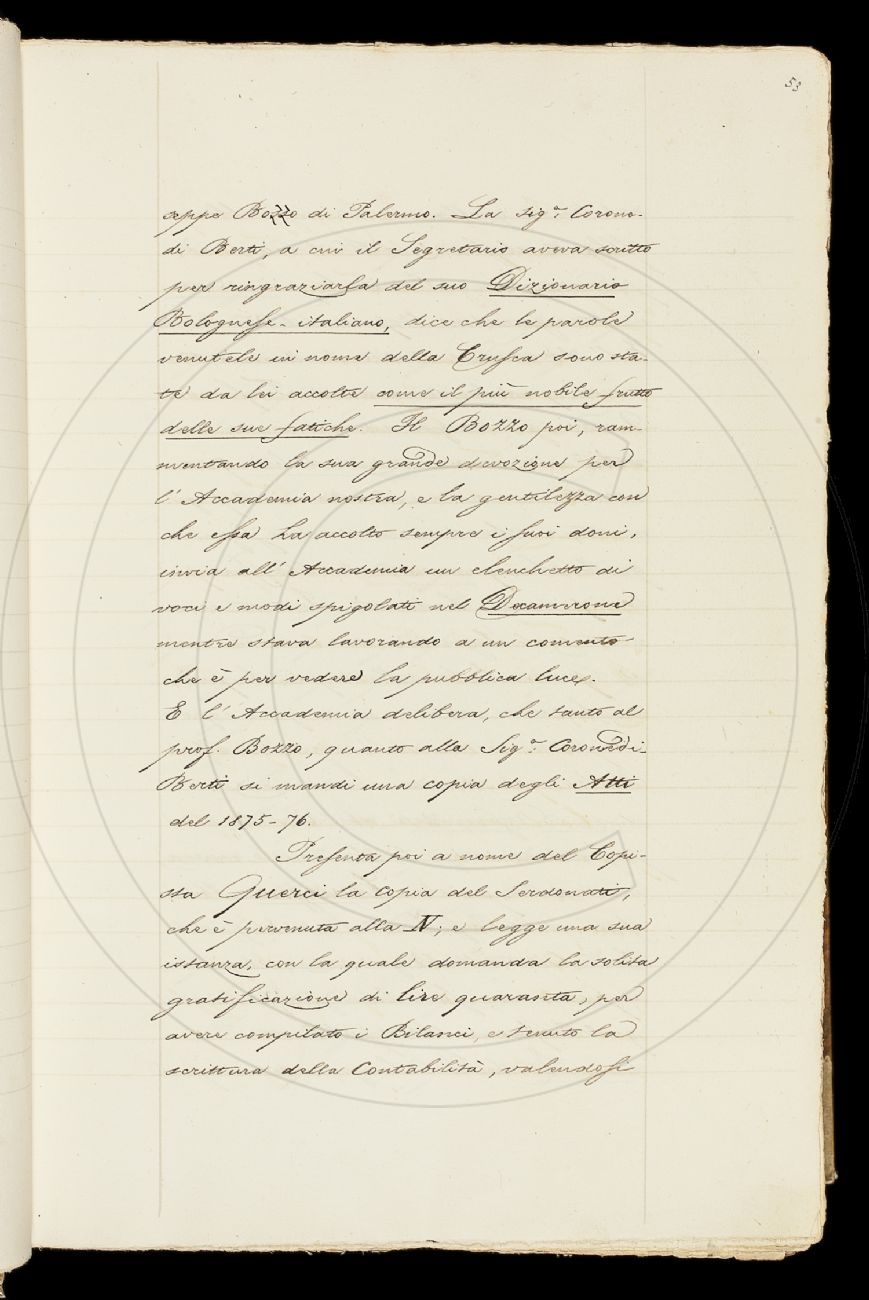 53
seppe Bozzo di Palermo. La Sig.ª Corone-
di Berti, a cui il Segretario aveva scritto
per ringraziarla del suo Dizionario
Bolognese-italiano, dice che le parole
venutele in nome della Crusca sono sta-
te da lei accolte come il più nobile frutto
delle sue fatiche. Il Bozzo poi, ram-
mentando la sua grande devozione per
l'Accademia nostra, e la gentilezza con
che essa ha accolto sempre i suoi doni,
invia all'Accademia un elenchetto di
voci e modi spigolati nel Decamerone
mentre stava lavorando a un comento
che è per vedere la pubblica luce.
E l'Accademia delibera, che tanto al
prof. Bozzo, quanto alla Sig.ª Coronedi-
Berti si mandi una copia degli Atti
del 1875-76.
Presenta poi a nome del Copi-
sta Querci la copia del Serdonati,
che è pervenuta alla N; e legge una sua
istanza, con la quale domanda la solita
gratificazione di lire quaranta, per
avere compilato i Bilanci, e tenuto la
scrittura della Contabilità, valendosi